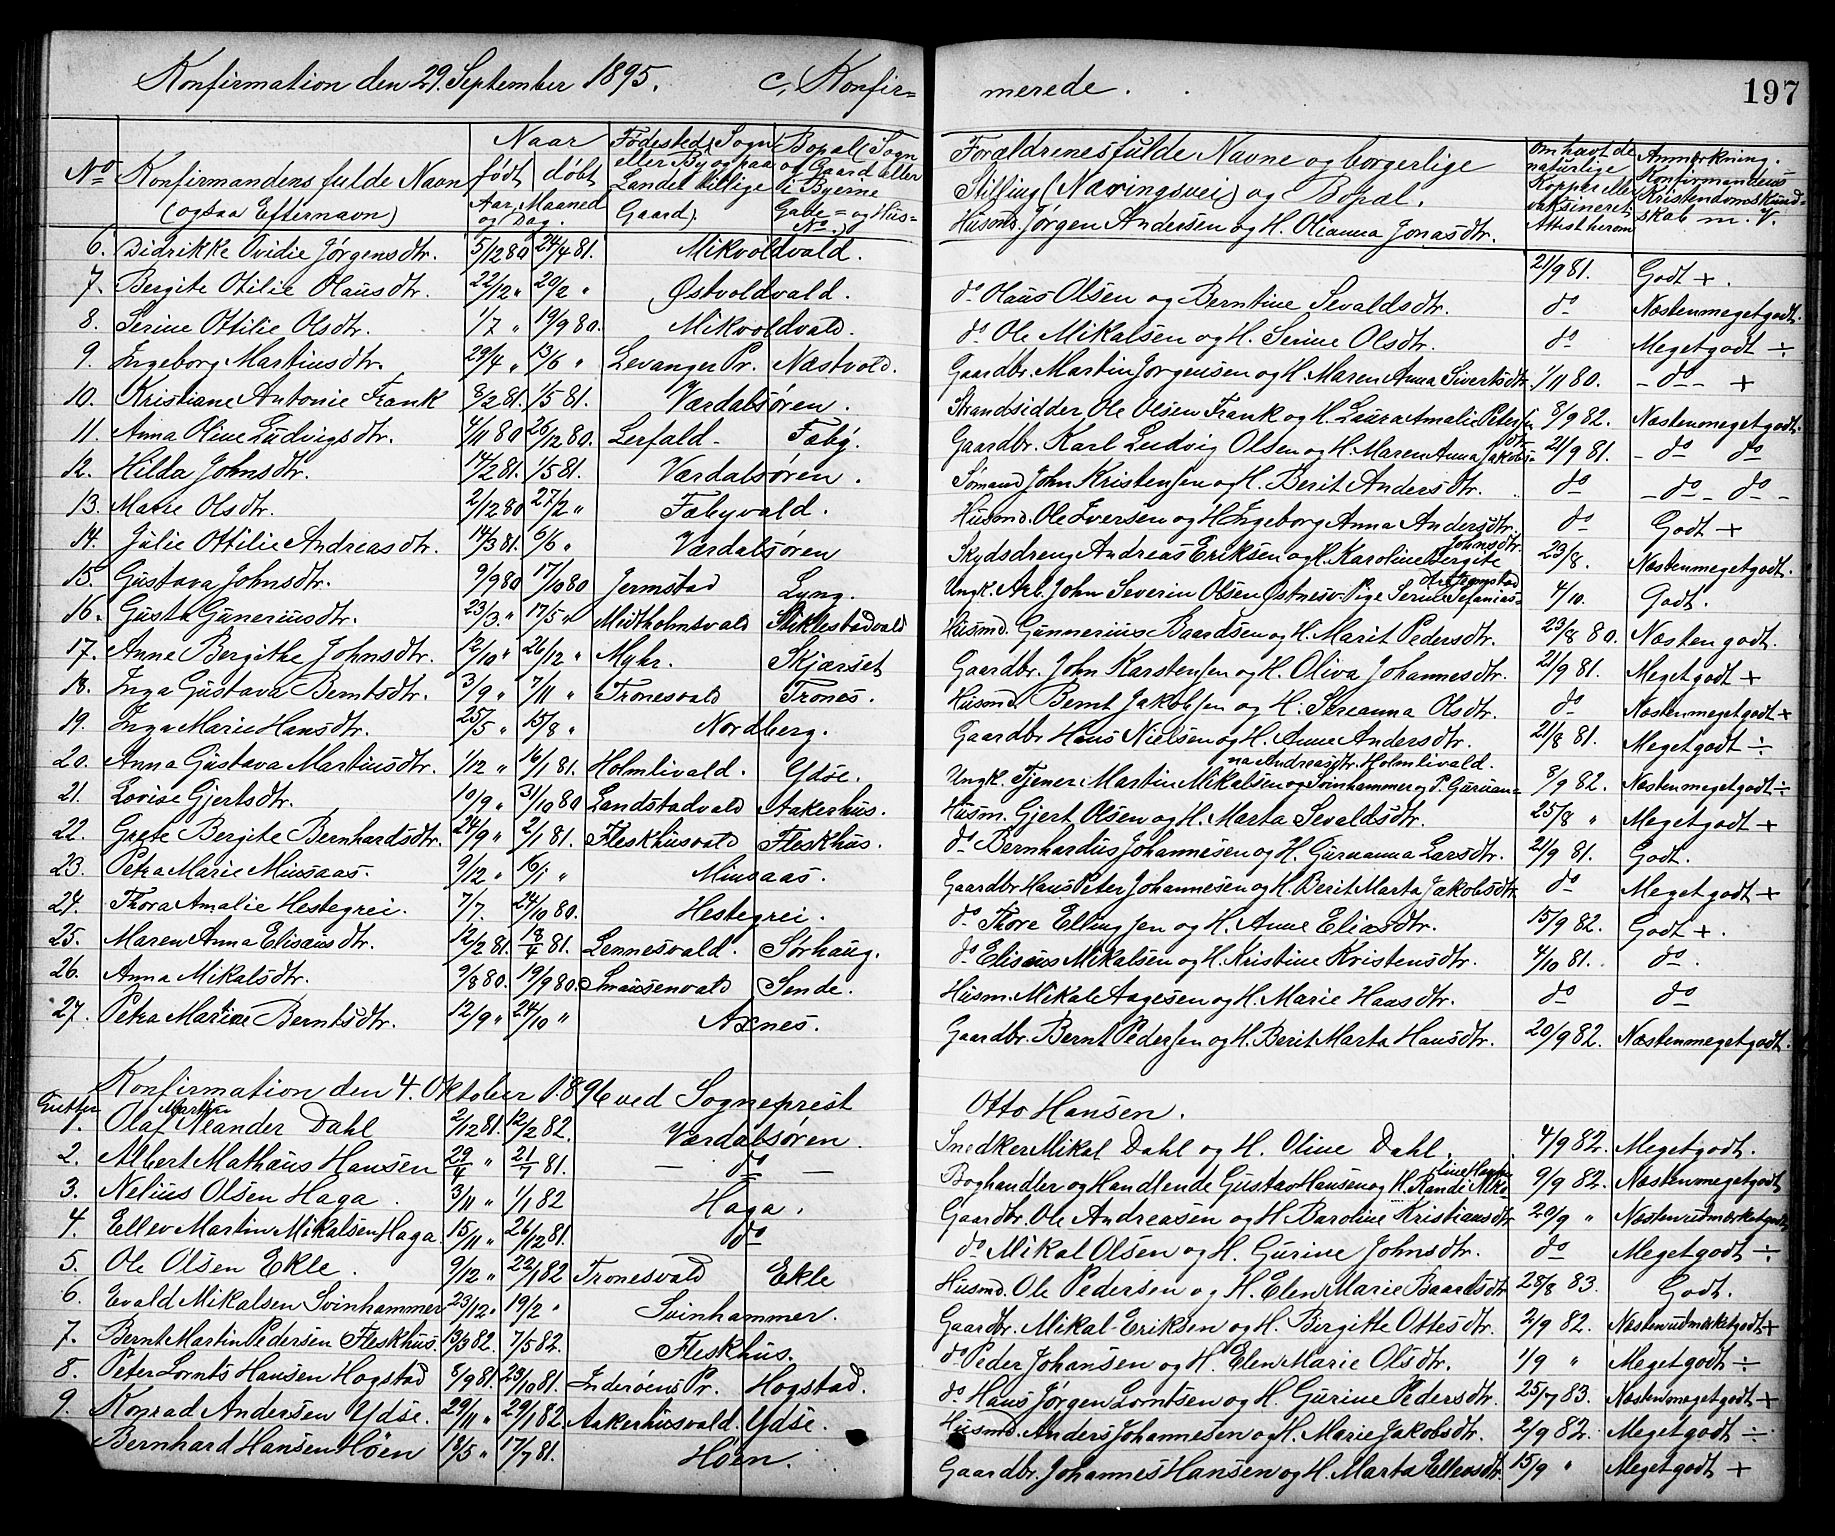 Konfirmation den 29. September 1895. c, Konfir=merede. 197
No Konfirmandens fulde Navn (ogsaa Efternavn) Naar født døbt Aar, Maaned og Dag. Fødested, Sogn eller By og paa Landet tillige Gaard). Bopæl (Sogn og Gaard eller i Byerne Gade= og Hus=No.) Forældrenes fulde Navne og borgerlige Stilling (Næringsvei) og Bopæl. Om havt de naturlige Kopper eller vaksineret. Attest herom Anmærkning. Konfirmandens Kristendomskundskab m. V.
6. Didrikke Ovidie Jørgensdtr. 5/12 80 24/4 81. Mikvoldvald. Husmd. Jørgen Andersen og H. Oleanna Jonasdtr. 21/9 81. Godt +.
7. Bergite Otilie Olausdtr. 22/12 " 20/2 " Østvoldvald. do Olaus Olsen og Berntine Sevaldsdtr. do Næstenmegetgodt.
8. Serine Ottilie Olsdtr. 1/7 " 19/9 80. Mikvoldvald. do Ole Mikalsen og H. Serine Olsdtr. do Megetgodt ÷
9. Ingeborg Martinsdtr. 29/4 " 13/6 " Levanger Pr. Næstvold. Gaardbr. Martin Jørgensen og H. Maren Anna Sivertsdtr. 1/11 80. - do - +
10. Kristiane Antonie Frank 8/2 81. 1/5 81. Værdalsøren. Strandsidder Ole Olsen Frank og H. Laura Amalie Peters 8/9 82. Næstenmegetgodt.
11. Anna Oline Ludvigsdtr. 4/11 80 26/12 80. Lerfald - Fæby. Gaardbr. Karl Ludvig Olsen og H. Maren Anna Jakobs= dtr. 21/9 81. - do do
12. Hilda Johnsdtr. 14/2 81. 1/5 81. Værdalsøren. Sømand John Kristensen og H. Berit Andersdtr. do - do - do -
13. Marie Olsdtr. 2/12 80 27/2 " Fæbyvald. Husmd. Ole Iversen og H. Ingeborg Anna Andersdtr. do Godt +
14. Julie Ottilie Andreasdtr. 14/3 81. 6/6 " Værdalsøren Skydsdreng Andreas Eriksen og H. Karoline Bergite Johnsdtr. 23/8. Næstenmegetgodt.
15. Gustava Johnsdtr. 9/9 80 17/10 80 Jermstad Lyng. Ungk. Arb. John Severin Olsen Østnesv. Pige Serine Stefanias= dtr. Jermstad 4/10. Godt.
16. Gusta Guneriusdtr. 23/3. " 17/5 " Midtholmsvald Stiklestadvald Husmd. Gunnerius Baardsen og H. Marit Pedersdtr. 23/8 80. Næsten godt.
17. Anne Bergithe Johnsdtr. 12/10 " 26/12 " Myhr. Skjærset Gaardbr. John Karstensen og H. Oliva Johannesdtr. 21/9 81. Megetgodt +
18. Inga Gustava Berntsdtr. 3/9 " 7/11 " Tronesvald Trones. Husmd. Bernt Jakobsen og H. Sereanna Olsdtr. do Næstenmegetgodt +
19. Inga Marie Hansdtr. 25/5 " 15/8 " Nordberg. Gaardbr Hans Nielsen og H. Anne Andersdtr. 21/8 81. Megetgodt ÷
20. Anna Gustava Martinsdtr. 1/12 " 16/1 81. Holmlivald. Ydse. Ungk. Tjener Martin Mikalsen og Svinhammer og P. Guruan=na Andreasdtr. Holmlivald. 8/9 82. Næstenmegetgodt ÷
21. Lovise Gjertsdtr. 10/9 " 31/10 80 Landstadvald Aakerhus. Husm. Gjert Olsen og H. Marta Sevaldsdtr. 25/8 " Megetgodt +
22. Grete Bergite Bernhardsdtr. 24/9 " 2/1 81. Fleskhusvald Fleskhus. do Bernhardus Johannesen og H. Guruanna Larsdtr. 21/9 81. Godt.
23. Petra Marie Minsaas. 9/12 " 16/1 " Minsaas. Gaardbr Hans Peter Johannesen og H. Berit Marta Jakobsdtr do Megetgodt +
24. Thora Amalie Hestegrei. 7/7. 24/10 80. Hestegrei. do Thore Ellingsen og H. Anne Eliasdtr. 15/9 82. Godt +.
25. Maren Anna Elisæusdtr. 12/2 81. 18/4 81. Lennesvald. Sørhaug. do Elisæus Mikalsen og H. Kristine Kristensdtr. 4/10 81. do.
26. Anna Mikalsdtr. 9/8 80. 19/9 80. Smausenvald Sende. Husm. Mikale Aagesen og H. Marie Haasdtr. do do
27. Petra Marie Berntsdtr. 12/9 " 24/10 " Axnes. Gaardbr. Bernt Pedersen og H. Berit Marta Hansdtr. 20/9 82. Næstenmegetgodt.
Konfirmation den 4. Oktober 1896 ved Sogneprest Otto Hansen.
Gutter
1. Olaf Marthin Neander Dahl 2/12 81. 12/2 82. Værdalsøren. Snedker Mikal Dahl og H. Oline Dahl. 4/9 82. Megetgodt.
2. Albert Mathæus Hansen 29/4 " 21/7 81. - do - Boghandler og Handlende Gustav Hansen og H. Randi Niko line Hansen 9/9 82. Næstenmegetgodt
3. Nelius Olsen Haga. 3/11 " 1/1 82 Haga. Gaardbr. Ole Andreasen og H Baroline Kristiansdtr 20/9 " Næstenudmærketgodt
4. Ellev Martin Mikalsen Haga. 15/11 " 26/12 81. do do Mikal Olsen og H. Gurine Johnsdtr. do Megetgodt ÷
5. Ole Olsen Ekle. 9/12 " 22/1 82 Tronesvald Ekle Husmd. Ole Pedersen og H. Elen Marie Baardsdtr 28/8 83. Godt.
6. Evald Mikalsen Svinhammer 23/12 " 19/2 " Svinhammer. Gaardbr. Mikal Eriksen og H. Birgitte Ottesdtr. 2/9 82. Næstenudmærketgodt +
7. Bernt Martin Pedersen Fleskhus. 13/3 82. 7/5 82. Fleskhus. do Peder Johansen og H. Elen Marie Olsdtr. 1/9 " Megetgodt ÷
8. Peter Lornts Hansen Hogstad 8/9 81. 23/10 81. Inderøens Pr. Hogstad. do Hans Jørgen Lorntsen og H. Gurine Pedersdtr. 25/7 83. Næstenmegetgodt +
9. Konrad Andersen Ydse. 29/11 " 29/1 82. Aakerhusvald. Ydse. Husmd. Anders Johannesen og H. Marie Jakobsdtr. 2/9 82. Megetgodt ÷
Bernhard Hansen Høen 18/5 " 17/7 81. Høen. Gaardbr. Johannes Hansen og H. Marta Ellevsdtr. 15/9 " Megetgodt +